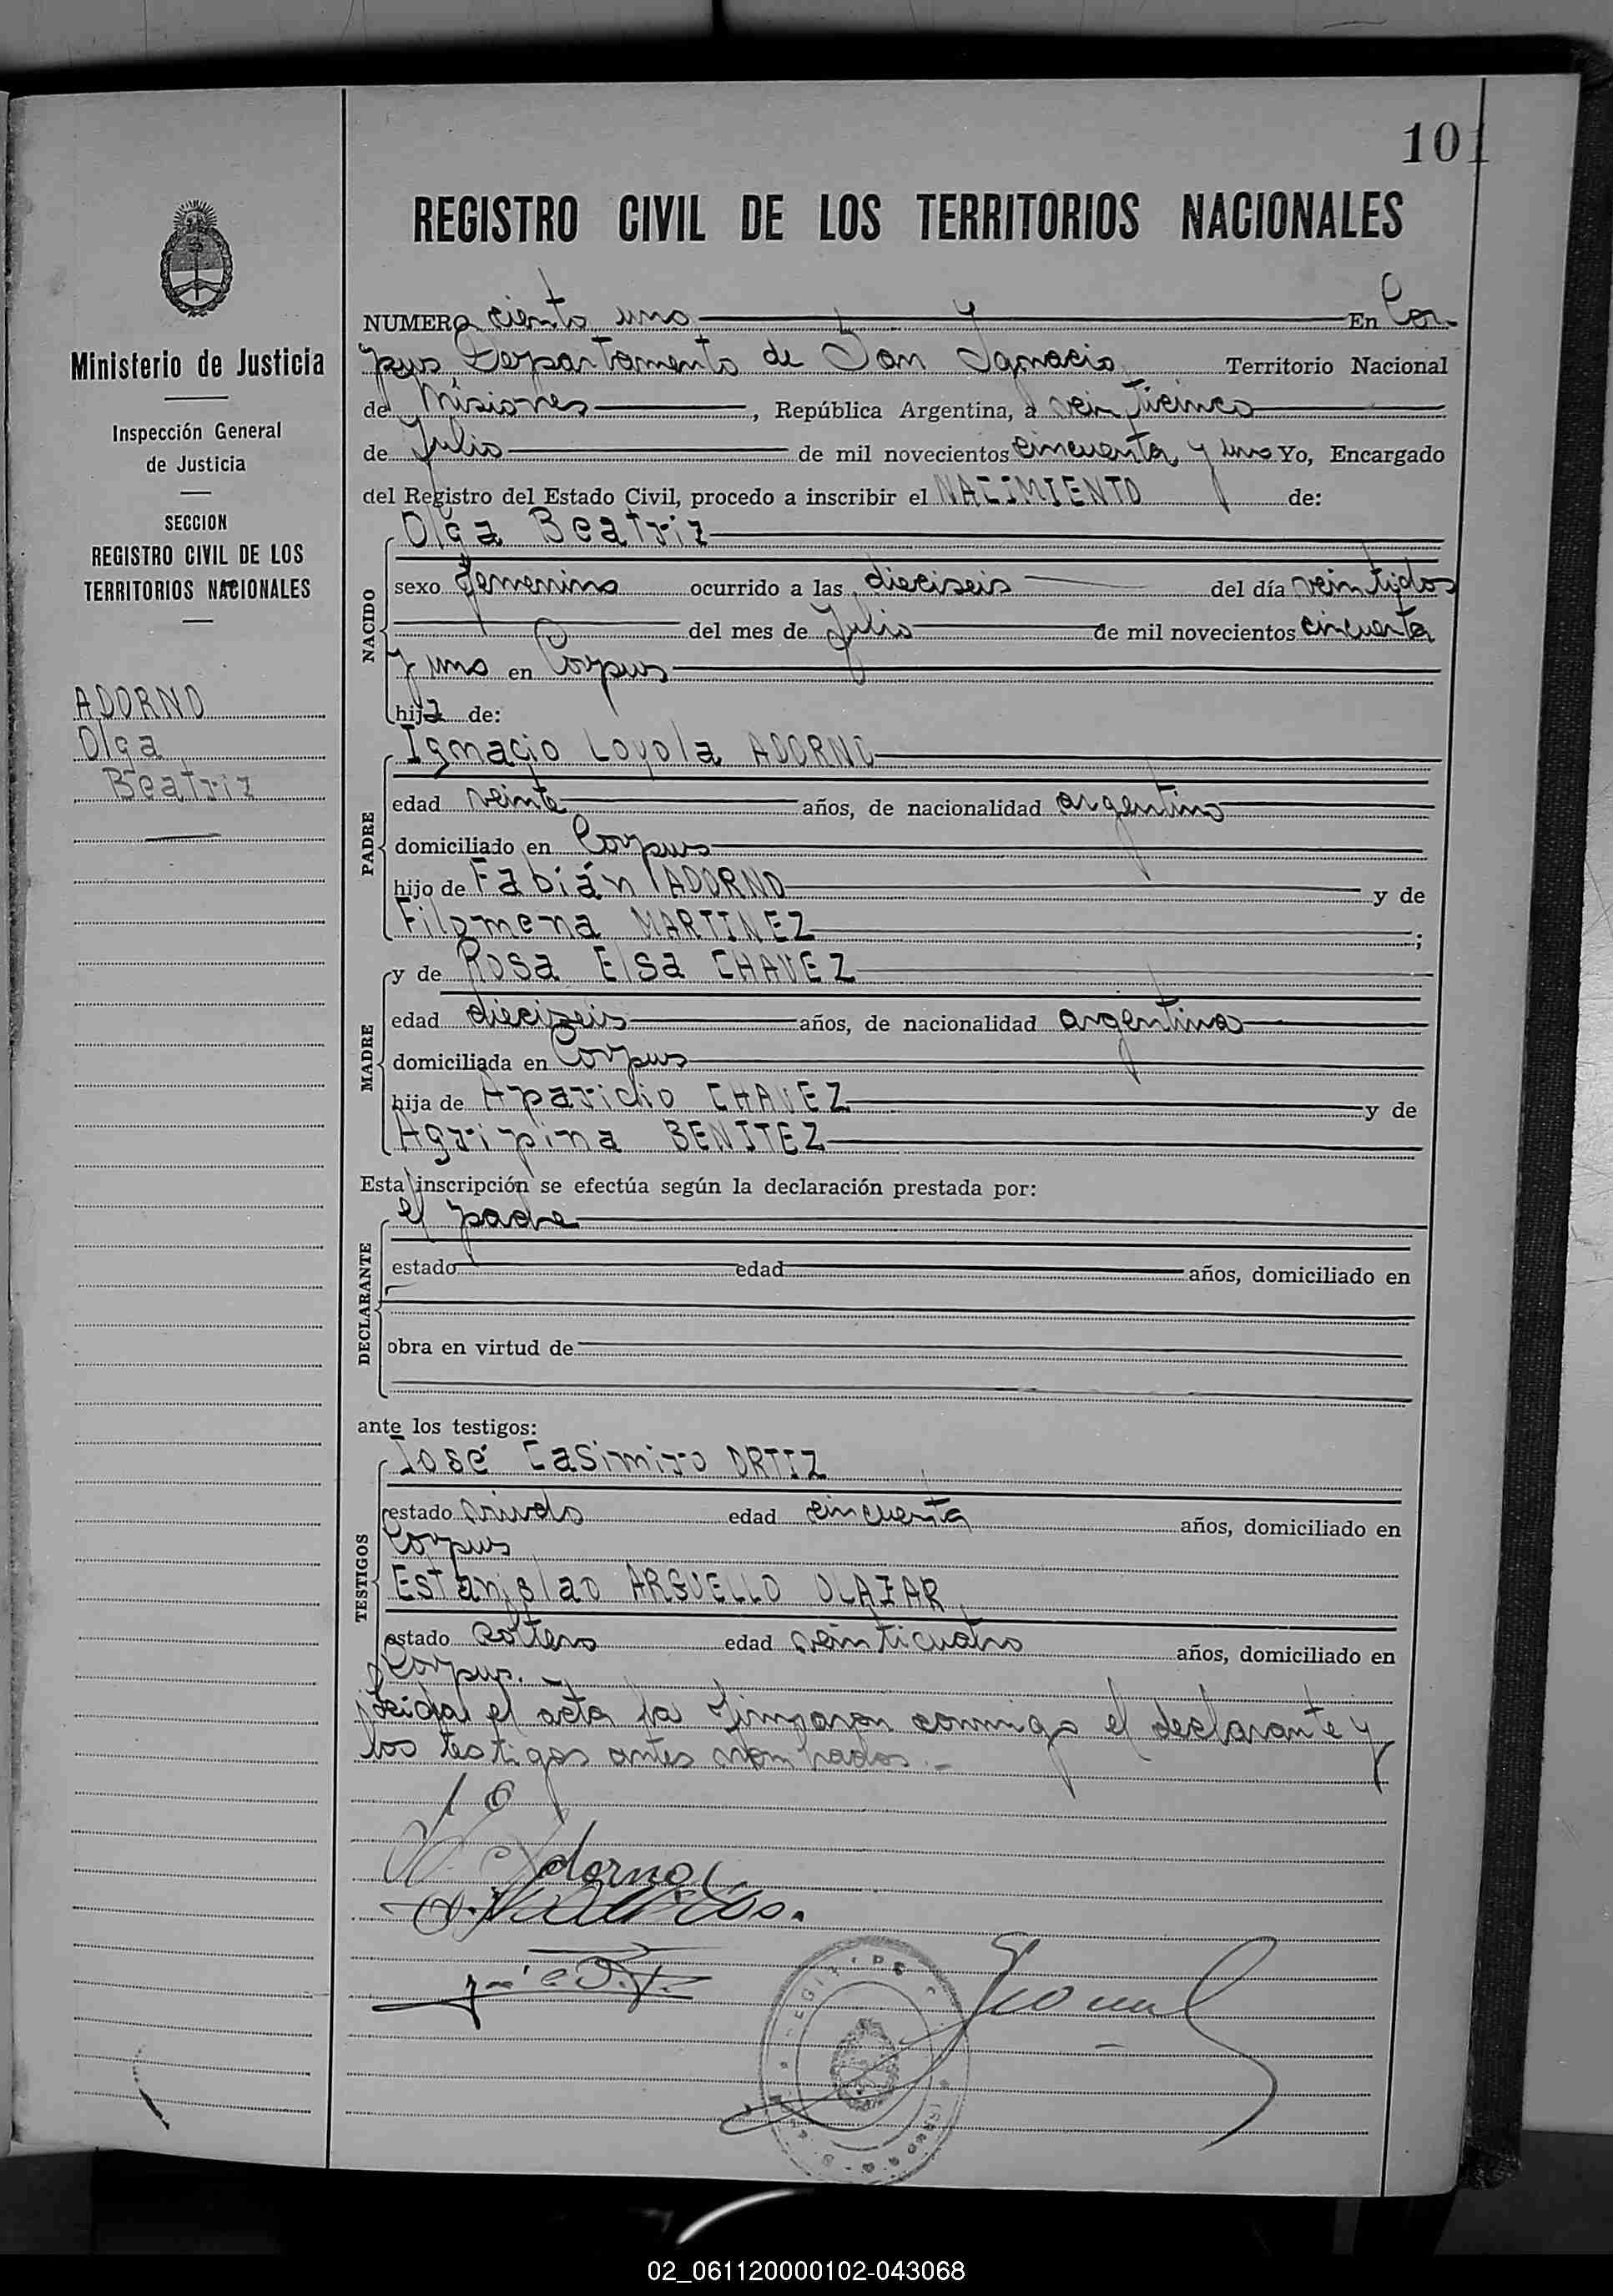 101
REGISTRO CIVIL DE LOS TERRITORIOS NACIONALES
Ministerio de Justicia
Inspección General
de Justicia
SECCION
REGISTRO CIVIL DE LOS
TERRITORIOS NACIONALES
ADORNO
Olga
Beatriz
NUMERO ciento uno En Cor-
pus, Departamento de San Ignacio Territorio Nacional
de Misiones, República Argentina, a veinticinco
de Julio de mil novecientos cincuenta y uno Yo, Encargado
del Registro del Estado Civil, procedo a inscribir el NACIMIENTO de:
NACIDO
Olga Beatriz
sexo femenino ocurrido a las dieciseis del día veintidos
del mes de Julio de mil novecientos cincuenta
y uno en Corpus
hija de:
PADRE
Ignacio Loyola ADORNO
edad veinte años, de nacionalidad argentino
domiciliado en Corpus
hijo de Fabián ADORNO y de
Filomena MARTINEZ;
MADRE
y de Rosa Elsa CHAVEZ
edad dieciseis años, de nacionalidad argentina
domiciliada en Corpus
hija de Aparicio CHAVEZ y de
Agripina BENITEZ
Esta inscripción se efectúa según la declaración prestada por:
DECLARANTE
el padre
estado edad años, domiciliado en
obra en virtud de
ante los testigos:
TESTIGOS
José Casimiro ORTIZ
estado viudo edad cincuenta años, domiciliado en
Corpus
Estanislao ARGUELLO OLAZAR
estado soltero edad veinticuatro años, domiciliado en
Corpus.
Leida el acta la firmaron conmigo el declarante y
los testigos antes nombrados.-
Adorno
02_061120000102-043068